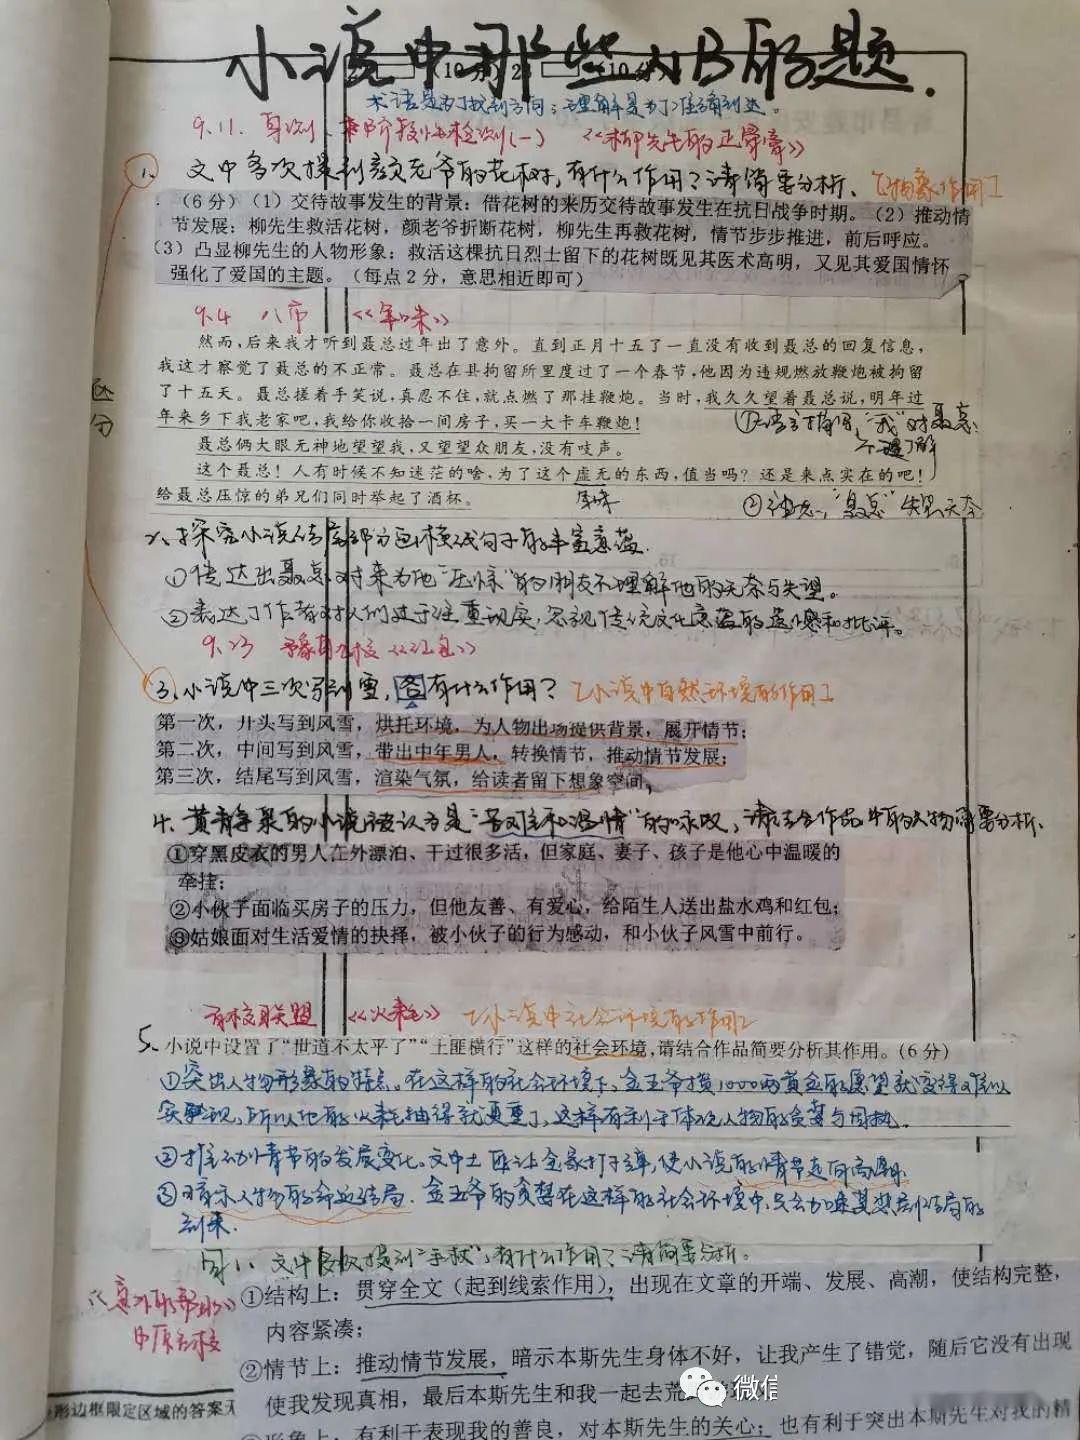 小说中那些NB的题.
（10分） 2 （10分）
术语是为了找到方向；理解是为了准确到达。
9.11. 阶段性检测(一) 《柳先生的正骨膏》
1. 文中多次提到颜老爷的花树，有什么作用？请简要分析、 [物象作用]
（6分）（1）交待故事发生的背景：借花树的来历交待故事发生在抗日战争时期。（2）推动情
节发展：柳先生救活花树，颜老爷折断花树，柳先生再救花树，情节步步推进，前后呼应。
（3）凸显柳先生的人物形象：救活这棵抗日烈士留下的花树既见其医术高明，又见其爱国情怀
强化了爱国的主题。（每点2分，意思相近即可）
9.4 八市 《年味》
然而，后来我才听到聂总过年出了意外。直到正月十五了一直没有收到聂总的回复信息，
我这才察觉了聂总的不正常。聂总在县拘留所里度过了一个春节，他因为违规燃放鞭炮被拘留
了十五天。聂总搓着手笑说，真忍不住，就点燃了那挂鞭炮。当时，我久久望着聂总说，明年过
年来乡下我老家吧，我给你收拾一间房子，买一大卡车鞭炮！
①语言描写，“我”对聂总
不理解
聂总俩大眼无神地望望我，又望望众朋友，没有吱声。
这个聂总！人有时候不知迷茫的啥，为了这个虚无的东西，值当吗？还是来点实在的吧！
给聂总压惊的弟兄们同时举起了酒杯。
年味
②神态，“聂总”失望无奈
2、探究小说结尾部分画横线句子的丰富意蕴.
①传达出聂总对来为他“压惊”的朋友不理解他的无奈与失望。
②表达了作者对人们过于注重现实，忽视传统文化意蕴的遗憾和批评。
区分
9.23 《红包》
3、小说中三次写到雪，各有什么作用？ [小说中自然环境的作用]
第一次，开头写到风雪，烘托环境，为人物出场提供背景，展开情节；
第二次，中间写到风雪，带出中年男人，转换情节，推动情节发展；
第三次，结尾写到风雪，渲染气氛，给读者留下想象空间，
4. 的小说被认为是“苦难和温情”的咏叹，请结合作品中的人物简要分析.
①穿黑皮衣的男人在外漂泊、干过很多活，但家庭、妻子、孩子是他心中温暖的
牵挂；
②小伙子面临买房子的压力，但他友善、有爱心，给陌生人送出盐水鸡和红包；
③姑娘面对生活爱情的抉择，被小伙子的行为感动，和小伙子风雪中前行。
名校联盟 《火耗》 [小说中社会环境的作用]
5、小说中设置了“世道不太平了”“土匪横行”这样的社会环境，请结合作品简要分析其作用。（6分）
①突出人物形象的特点。在这样的社会环境下，金五爷攒1000两黄金的愿望就变得难以
实现，所以他的火耗抽得就更重了，这样有利于体现人物的贪婪与固执.
②推动情节的发展变化。文中土匪让金家打了埠，使小说的情节走向高潮.
③暗示人物的命运结局. 金五爷的贪婪在这样的社会环境中，只会加速其悲剧结局的
到来.
同1、文中多次提到“手杖”，有什么作用？请简要分析。
《意外的帮助》
中原名校
①结构上：贯穿全文（起到线索作用），出现在文章的开端、发展、高潮，使结构完整，
内容紧凑；
②情节上：推动情节发展，暗示本斯先生身体不好，让我产生了错觉，随后它没有出现
使我发现真相，最后本斯先生和我一起去荒
微信
形边框限定区域的答案无
③形象上：有利于表现我的善良，对本斯先生的关心；也有利于突出本斯先生对我的精